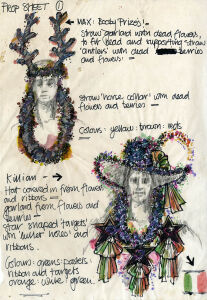 PROP SHEET ①
MAX: Booby Prizes! —
Straw garland with dead flowers,
to fit head and supporting straw
'antlers' with dead berries
and flowers. —
Straw 'horse collar' with dead
flowers and berries —
Colours: yellow: brown: reds.
Killian —
Hat covered in fresh flowers
and ribbons —
garland fresh flowers and
berries —
Straw shaped 'targets'
with bullet holes and
ribbons.
Colours: greens: pastels:
ribbon and targets
orange: white: green.